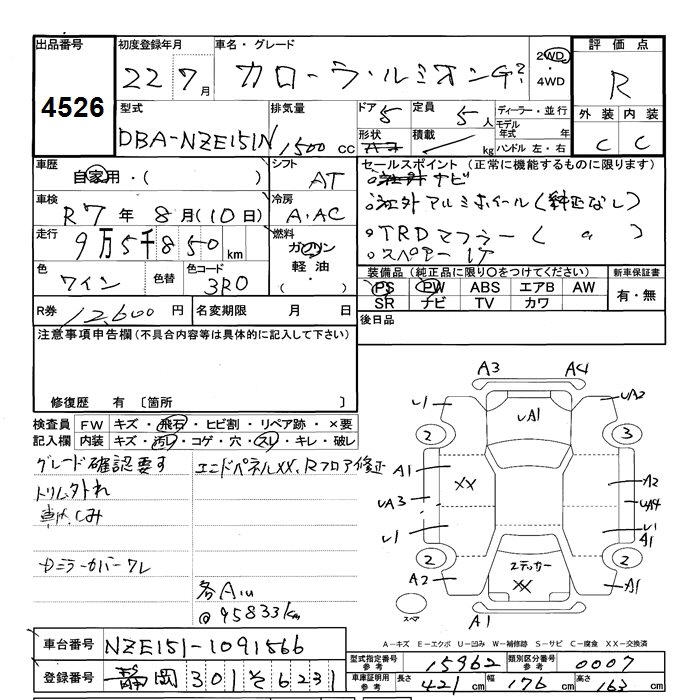 出品番号 初度登録年月 車名・グレード 2WD ・4WD 評価点
4526 22 7月 カローラ・ルミオン R
型式 排気量 ドア 定員 ディーラー・並行 外装 内装
DBA-NZE151N 1500cc 5 5人 モデル年式 年 C C
形状 積載 kg ハンドル 左・右
車歴 シフト セールスポイント (正常に機能するものに限ります)
自家用・( ) AT ナビ
車検 冷房 社外アルミホイール(純正なし)
R7年8月(10日) A・AC TRDマフラー( 〃 )
走行 燃料 スペアー1ケ
9万5千850km ガソリン 軽油・( )
色 色替 色コード 装備品 (純正品に限り○をつけてください) 新車保証書
ワイン 3R0 PS PW ABS エアB AW 有・無
SR ナビ TV カワ
R券 12,600円 名変期限 月 日 後日品
注意事項申告欄(不具合内容等は具体的に記入して下さい)
修復歴 有 〔箇所 〕
検査員記入欄 FW キズ・飛石・ヒビ割・リペア跡・×要
内装 キズ・汚レ・コゲ・穴・スレ・キレ・破レ
グレード確認要す エンドパネルXX、Rフロア修正
トリム外れ
車内しみ
ミラーカバーワレ
各AiU
@95833km
A3 A4
U1 UA1 UA2
2 3
A1 XX A2
UA3 UA4
U1 U1 A1
2 ステッカー 2
A2 XX A1
スペア A1
A-キズ E-エクボ U-凹み W-補修跡 S-サビ C-腐食 XX-交換済
車台番号 NZE151-1091566
型式指定番号 参考 15962 類別区分番号 参考 0007
登録番号 静岡 301 そ 6231
車庫証明用 参考 長さ 421cm 幅 176cm 高さ 163cm